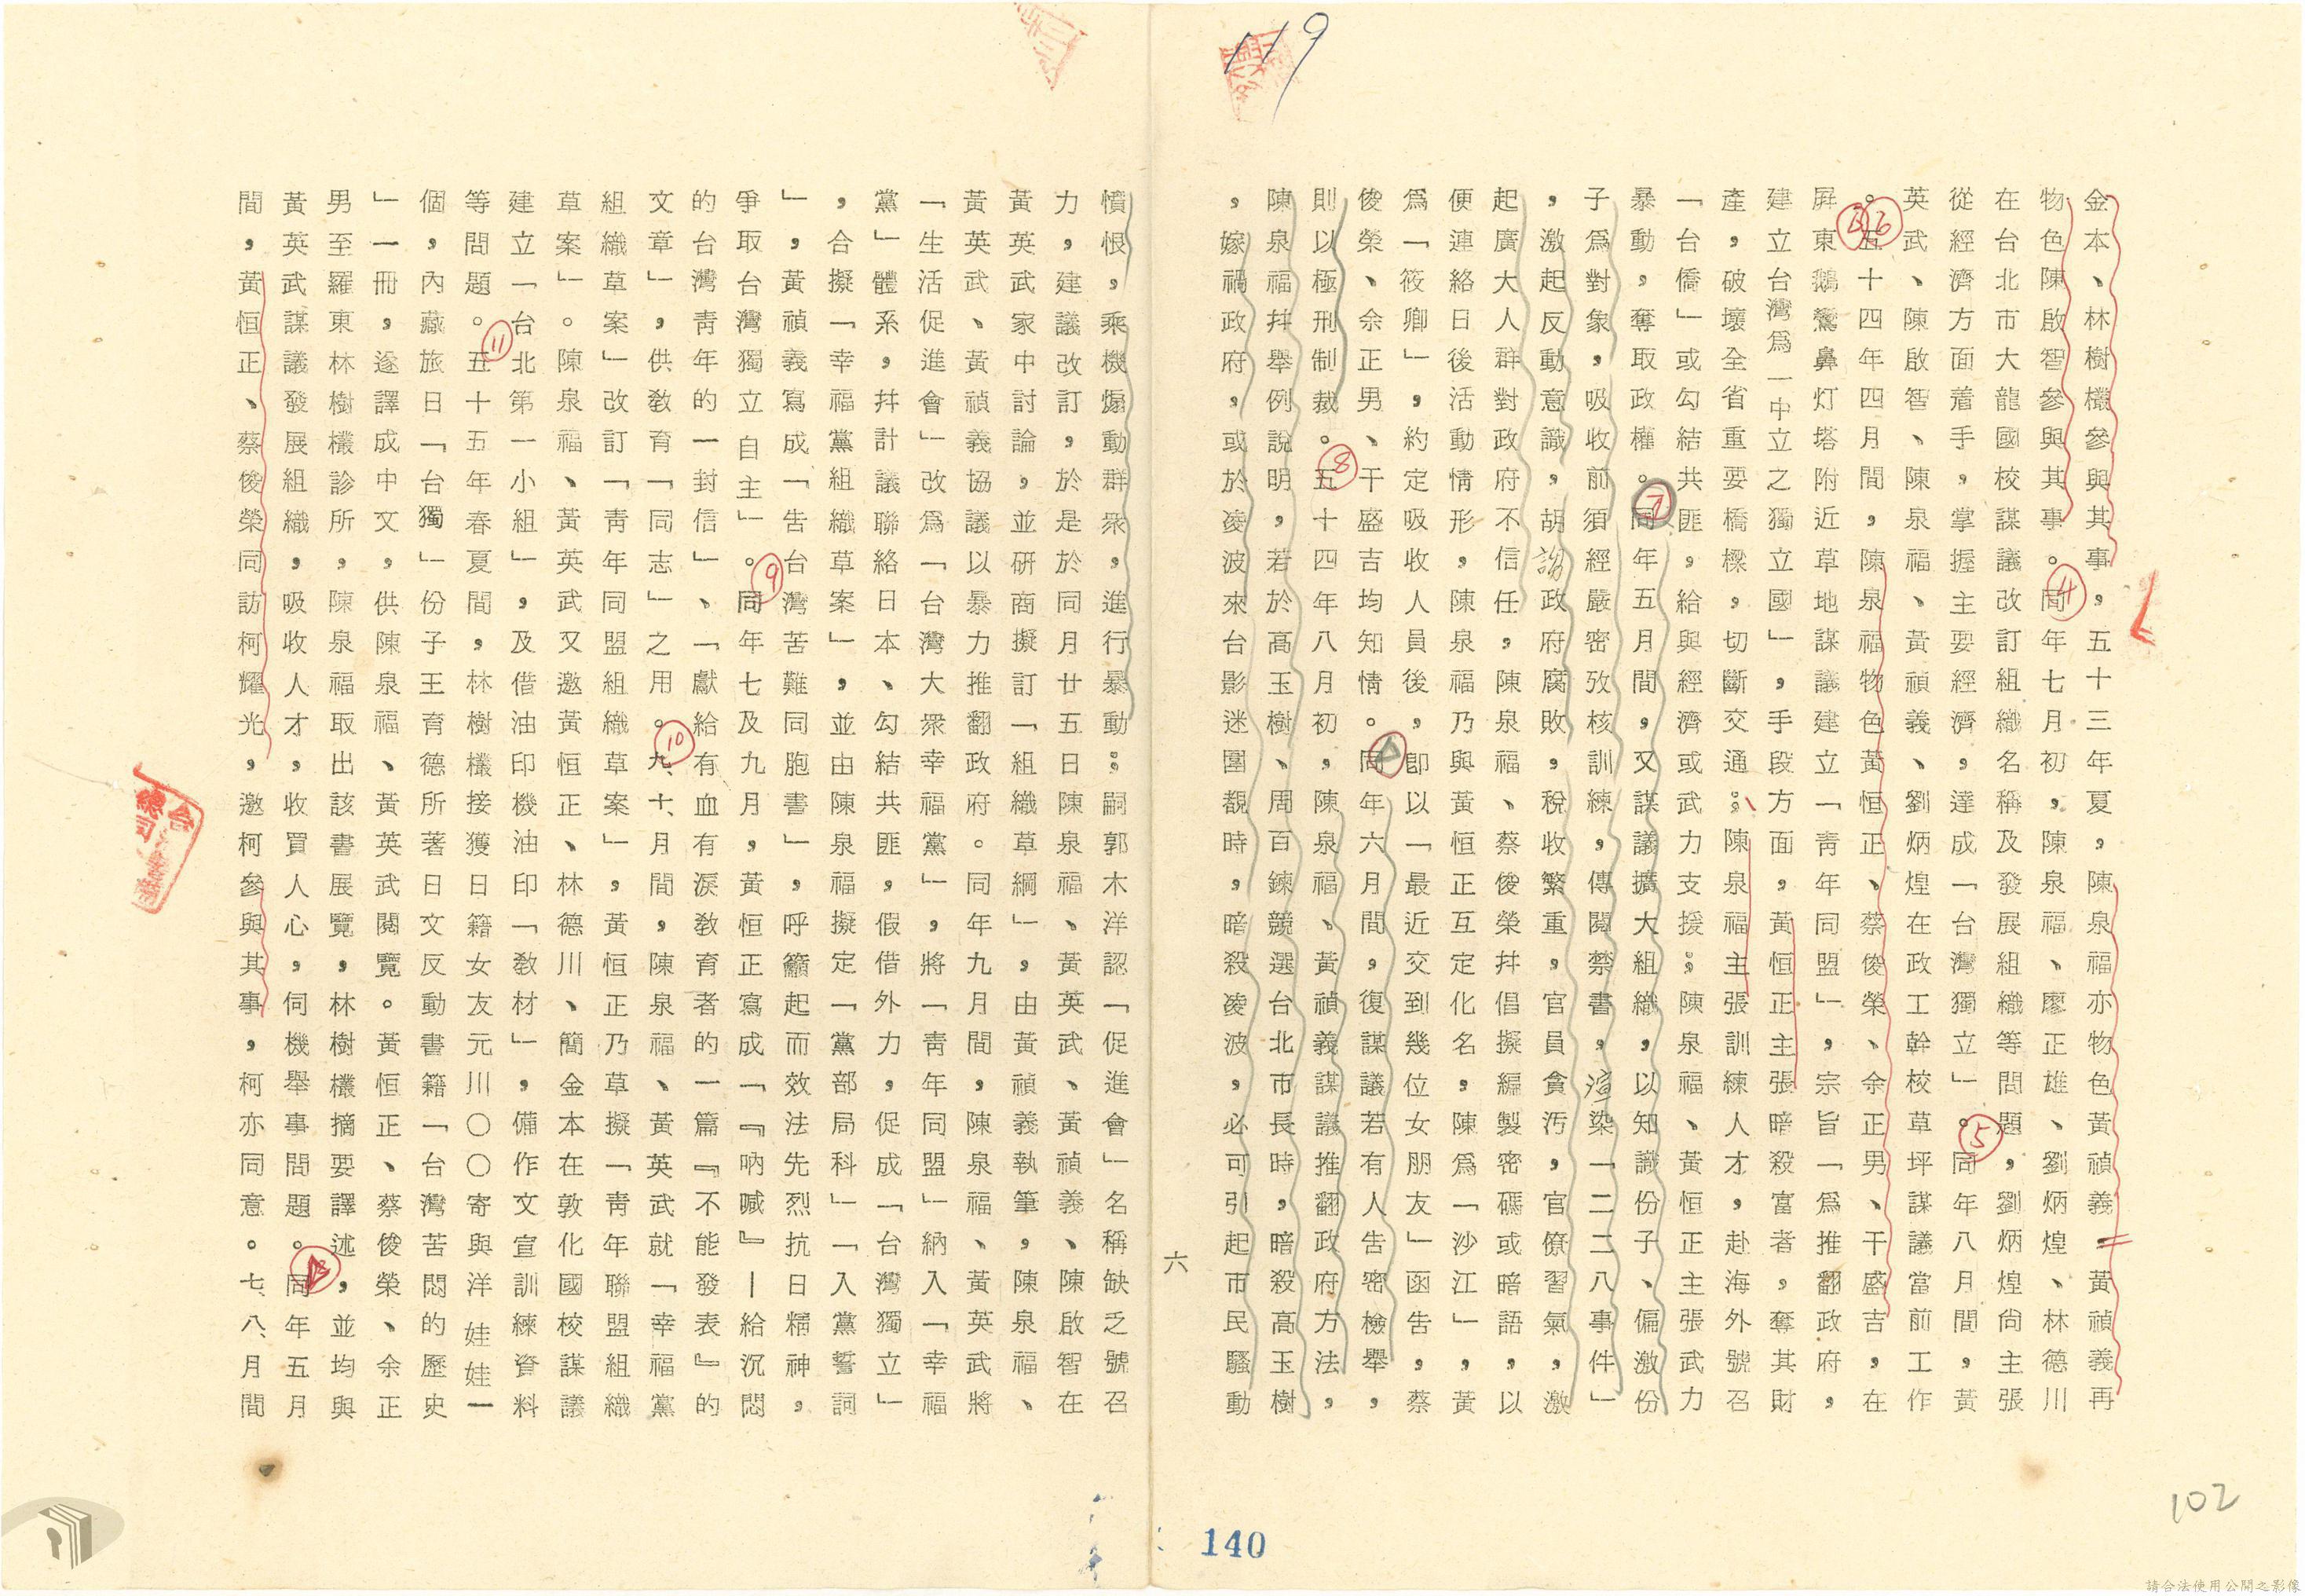 119
金本、林樹欉參與其事，五十三年夏，陳泉福亦物色黃禎義，黃禎義再
物色陳啟智參與其事。同年七月初，陳泉福、廖正雄、劉炳煌、林德川
在台北市大龍國校謀議改訂組織名稱及發展組織等問題，劉炳煌尙主張
從經濟方面着手，掌握主要經濟，達成「台灣獨立」。同年八月間，黃
英武、陳啟智、陳泉福、黃禎義、劉炳煌在政工幹校草坪謀議當前工作
。五十四年四月間，陳泉福物色黃恒正、蔡俊榮、余正男、干盛吉，在
屛東鵝鸞鼻灯塔附近草地謀議建立「靑年同盟」，宗旨「爲推翻政府，
建立台灣爲一中立之獨立國」，手段方面，黃恒正主張暗殺富者，奪其財
產，破壞全省重要橋樑，切斷交通；陳泉福主張訓練人才，赴海外號召
「台僑」或勾結共匪，給與經濟或武力支援；陳泉福、黃恒正主張武力
暴動，奪取政權。同年五月間，又謀議擴大組織，以知識份子、偏激份
子爲對象，吸收前須經嚴密攷核訓練，傳閱禁書，渲染「二二八事件」
，激起反動意識，胡謅政府腐敗，稅收繁重，官員貪汚，官僚習氣，激
起廣大人群對政府不信任，陳泉福、蔡俊榮幷倡擬編製密碼或暗語，以
便連絡日後活動情形，陳泉福乃與黃恒正互定化名，陳爲「沙江」，黃
爲「筱卿」，約定吸收人員後，卽以「最近交到幾位女朋友」函告，蔡
俊榮、余正男、干盛吉均知情。同年六月間，復謀議若有人告密檢舉，
則以極刑制裁。五十四年八月初，陳泉福、黃禎義謀議推翻政府方法，
陳泉福幷舉例說明，若於高玉樹、周百鍊競選台北市長時，暗殺高玉樹
，嫁禍政府，或於凌波來台影迷圍觀時，暗殺凌波，必可引起市民騷動
六
憤恨，乘機煽動群衆，進行暴動；嗣郭木洋認「促進會」名稱缺乏號召
力，建議改訂，於是於同月廿五日陳泉福、黃英武、黃禎義、陳啟智在
黃英武家中討論，並硏商擬訂「組織草綱」，由黃禎義執筆，陳泉福、
黃英武、黃禎義協議以暴力推翻政府。同年九月間，陳泉福、黃英武將
「生活促進會」改爲「台灣大衆幸福黨」，將「靑年同盟」納入「幸福
黨」體系，幷計議聯絡日本、勾結共匪，假借外力，促成「台灣獨立」
，合擬「幸福黨組織草案」，並由陳泉福擬定「黨部局科」「入黨誓詞
」，黃禎義寫成「告台灣苦難同胞書」，呼籲起而效法先烈抗日精神，
爭取台灣獨立自主」。同年七及九月，黃恒正寫成「『吶喊』—給沉悶
的台灣靑年的一封信」、「獻給有血有淚敎育者的一篇『不能發表』的
文章」，供敎育「同志」之用。九、十、月間，陳泉福、黃英武就「幸福黨
組織草案」改訂「靑年同盟組織草案」，黃恒正乃草擬「靑年聯盟組織
草案」。陳泉福、黃英武又邀黃恒正、林德川、簡金本在敦化國校謀議
建立「台北第一小組」，及借油印機油印「敎材」，備作文宣訓練資料
等問題。五十五年春夏間，林樹欉接獲日籍女友元川〇〇寄與洋娃娃一
個，內藏旅日「台獨」份子王育德所著日文反動書籍「台灣苦悶的歷史
」一冊，逐譯成中文，供陳泉福、黃英武閱覽。黃恒正、蔡俊榮、余正
男至羅東林樹欉診所，陳泉福取出該書展覽，林樹欉摘要譯述，並均與
黃英武謀議發展組織，吸收人才，收買人心，伺機舉事問題。同年五月
間，黃恒正、蔡俊榮同訪柯耀光，邀柯參與其事，柯亦同意。七、八、月間
4
5
6
7
8
9
10
11
140
102
請合法使用公開之影像